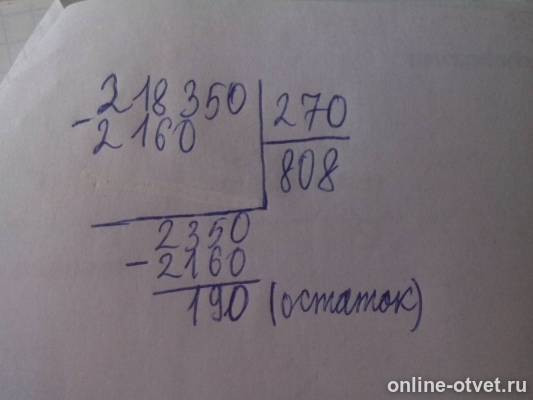 218350 270
- 2160 808
2350
- 2160
190 (остаток)
online-otvet.ru